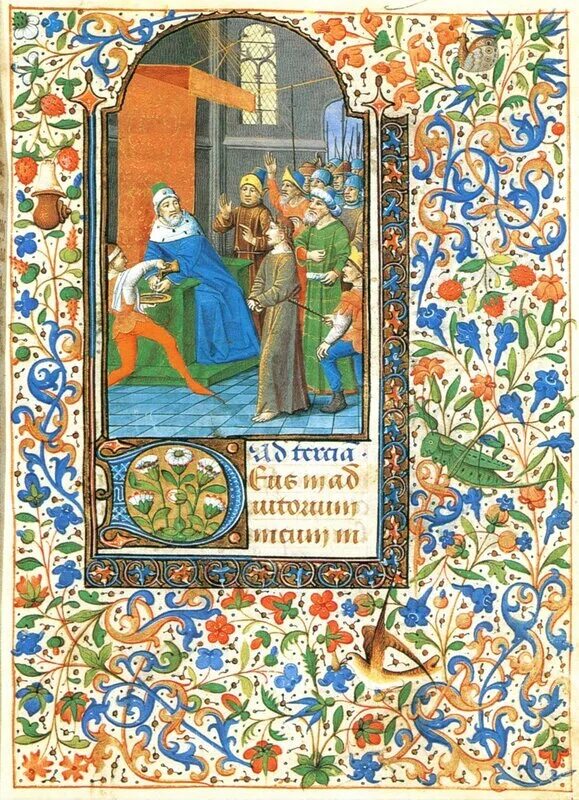 Ad tercia.
Deus in ad
iutorium
meum in